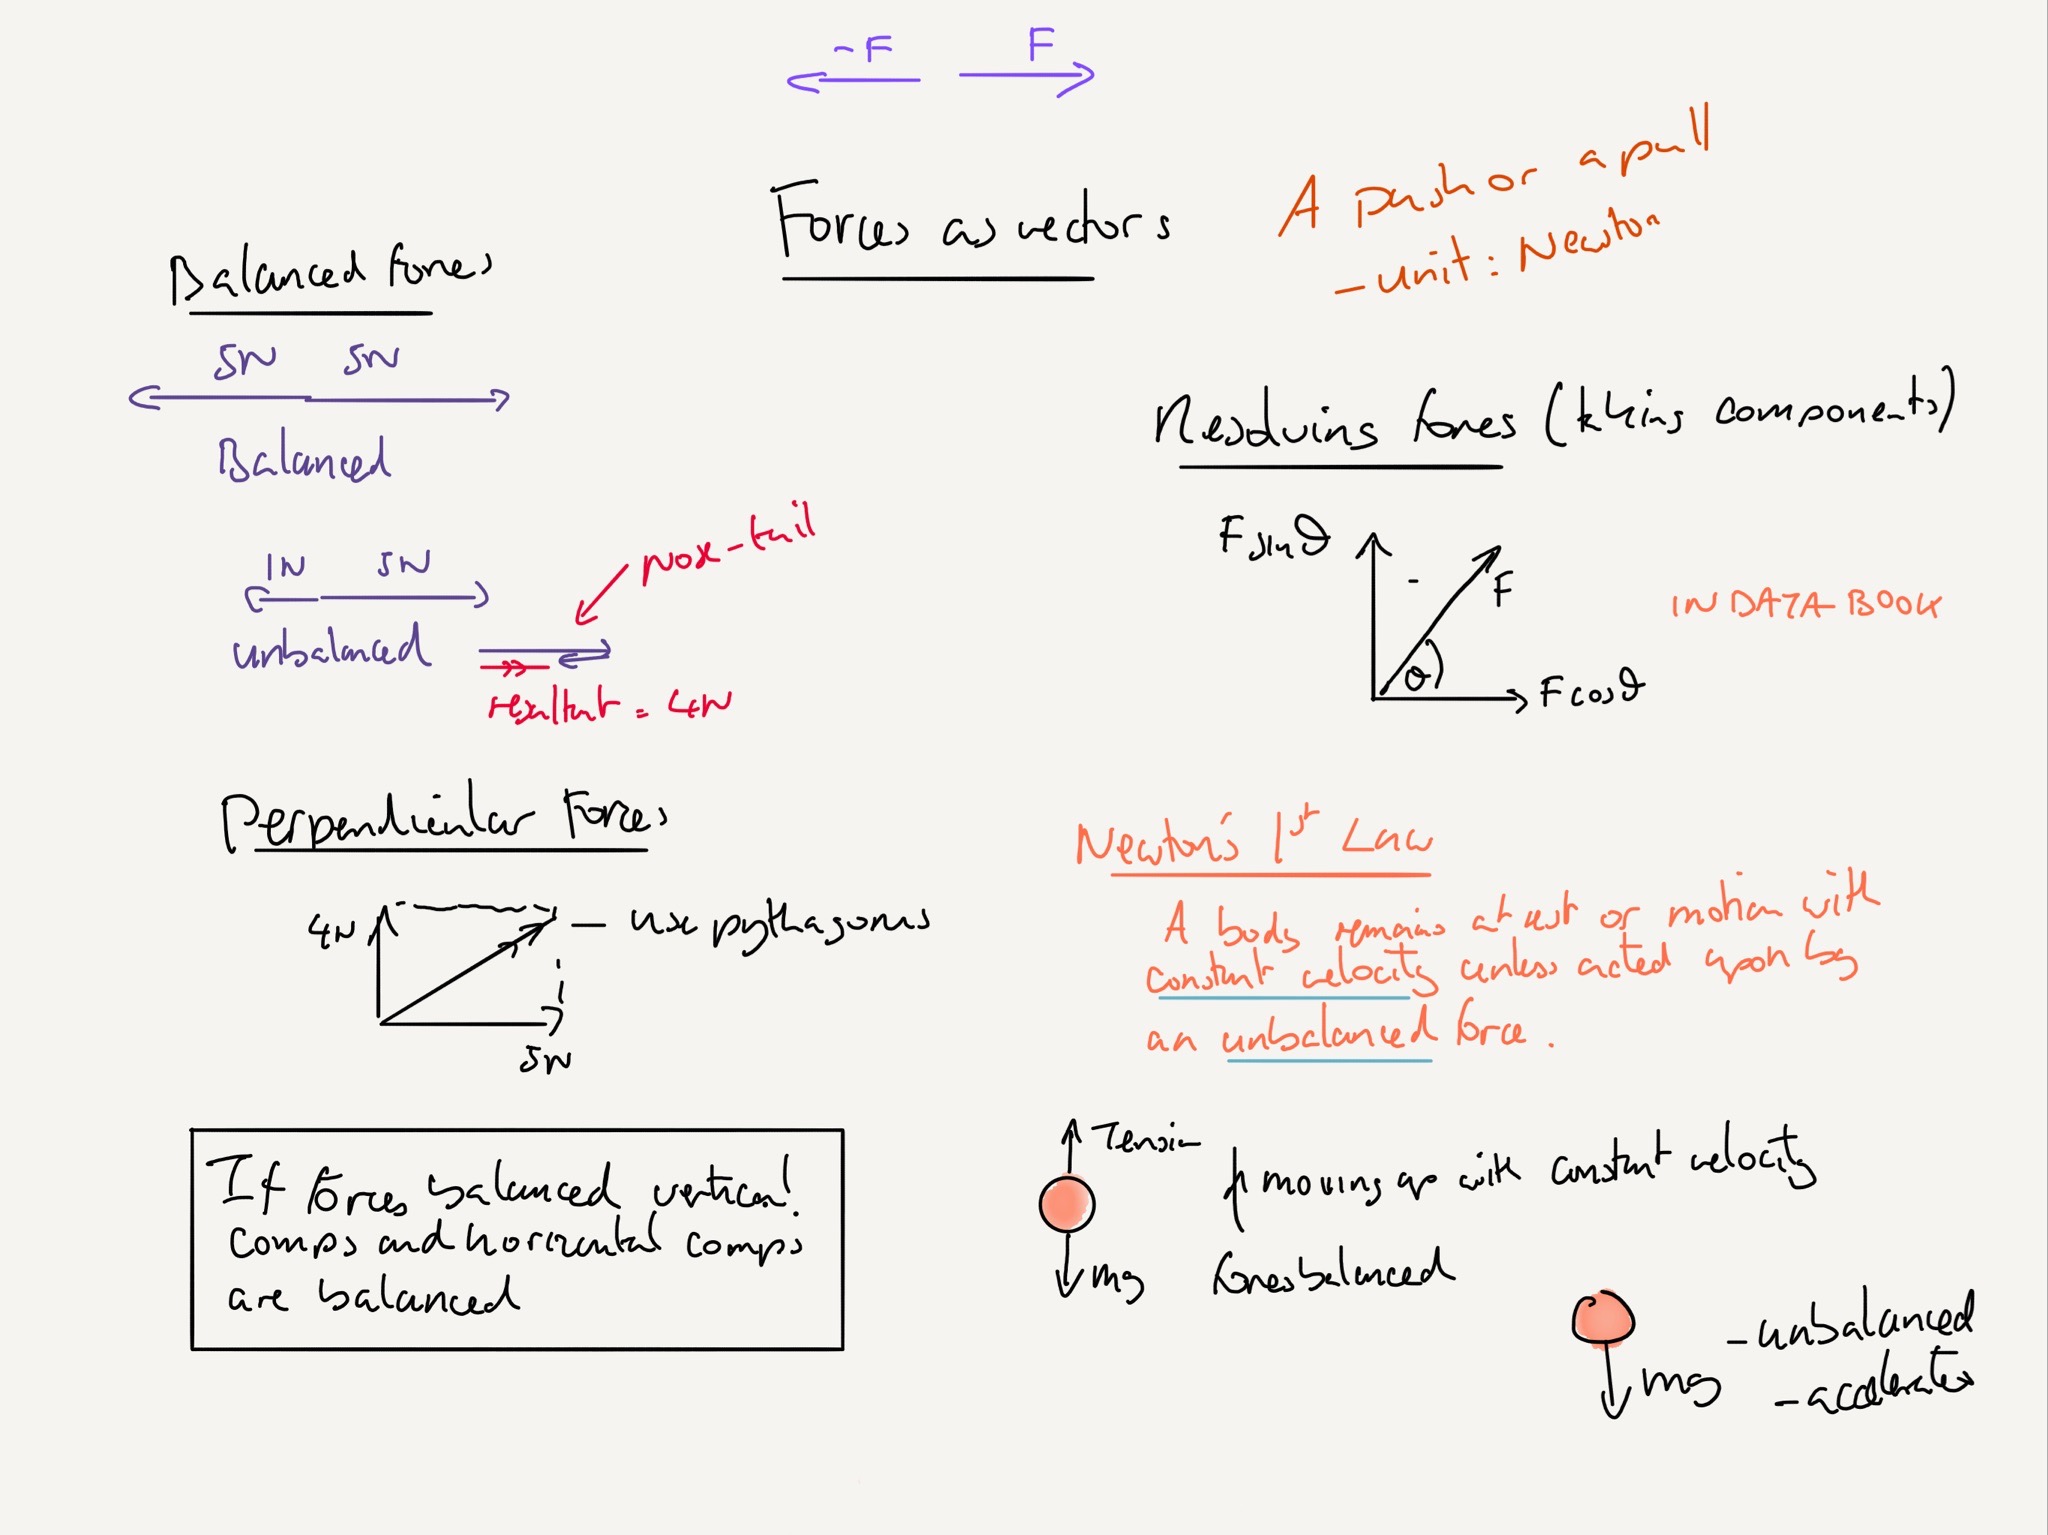 -F F
Forces as vectors
A push or a pull
- unit: Newton
Balanced forces
5N 5N
Balanced
1N 5N
unbalanced
nose-tail
resultant = 4N
Perpendicular Forces
4N
- use pythagorus
5N
If forces balanced vertical
comps and horizontal comps
are balanced
Resolving forces (taking components)
F sinθ
F
θ
F cosθ
IN DATA BOOK
Newton's 1st Law
A body remains at rest or motion with
constant velocity unless acted upon by
an unbalanced force.
Tension
moving up with constant velocity
mg
forces balanced
mg
- unbalanced
- accelerates